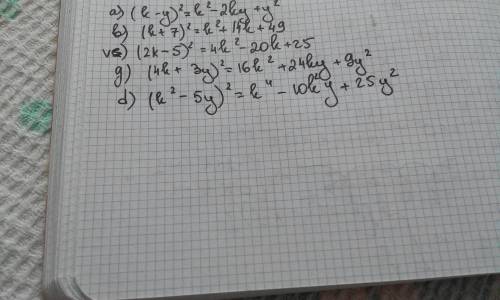 a) (k-y)²=k²-2ky+y²
b) (k+7)²=k²+14k+49
vc) (2k-5)²=4k²-20k+25
g) (4k+3y)²=16k²+24ky+9y²
d) (k²-5y)²=k⁴-10k²y+25y²